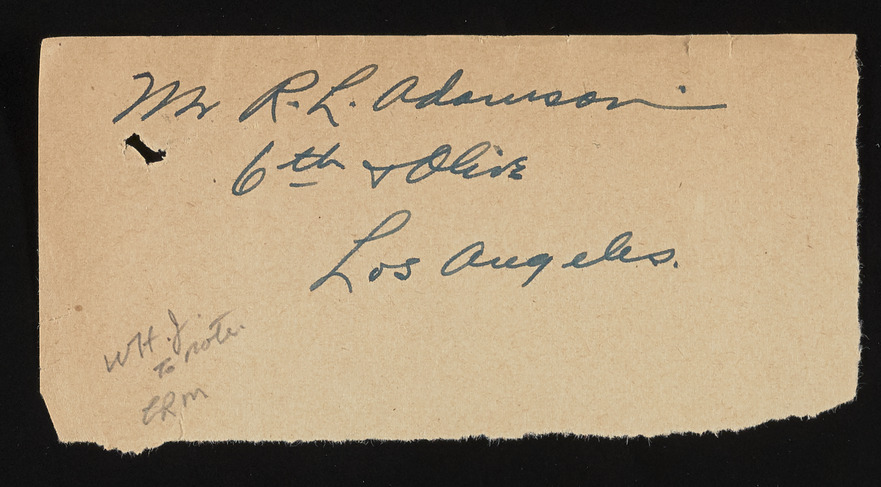 Mr R. L. Adamson
6th & Olive
Los Angeles.
WH.J.
to note.
ERM